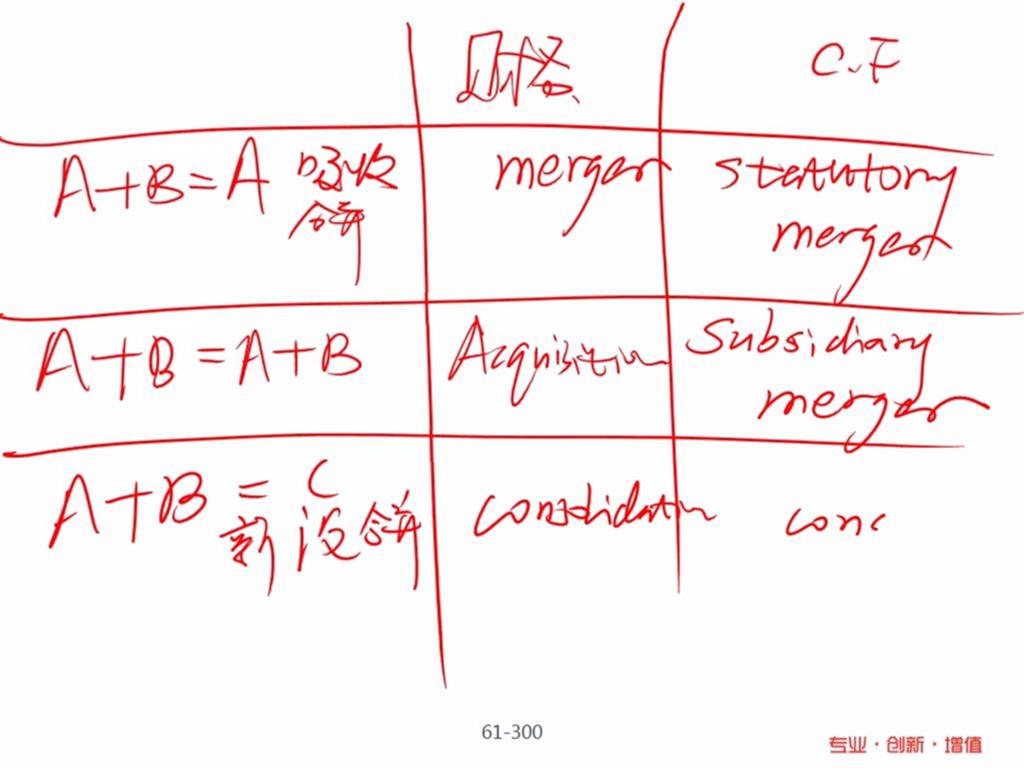 财务 C.F
A+B=A 吸收 merger statutory
合并 merger
A+B=A+B Acquisition Subsidiary
merger
A+B = C consolidation conc
新设合并
61-300
专业·创新·增值